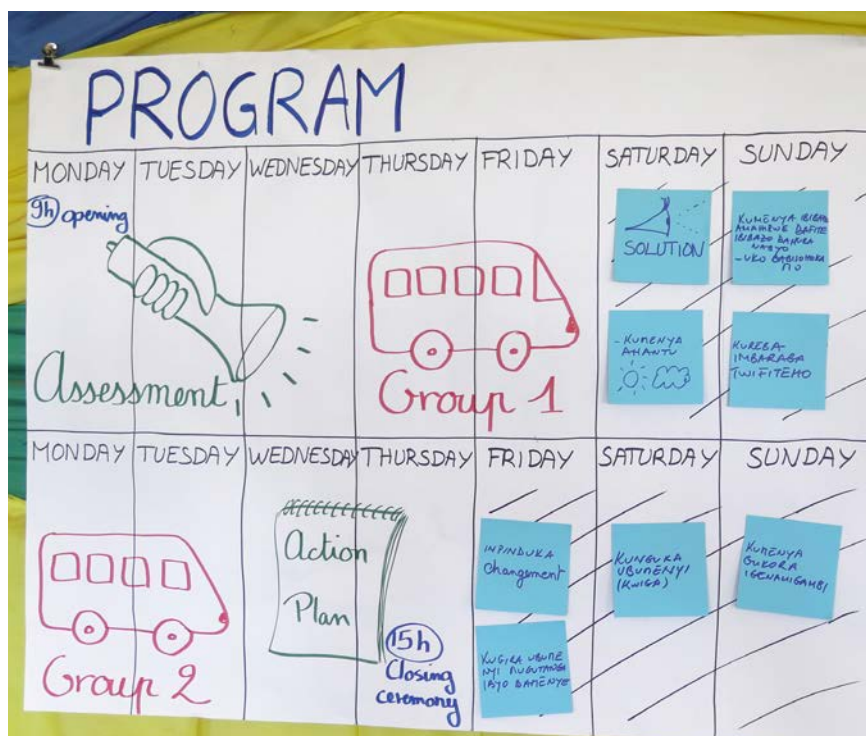 PROGRAM
MONDAY TUESDAY WEDNESDAY THURSDAY FRIDAY SATURDAY SUNDAY
9h opening
Assessment
Group 1
SOLUTION
KUMENYA IBIBAZO
AMAHEWE BAFITE
IBIBAZO BAHURA
NABYO
-UKO BABISOHOKA
MO
-KUMENYA
AHANTU
KUREBA
IMBARAGA
TWIFITEMO
MONDAY TUESDAY WEDNESDAY THURSDAY FRIDAY SATURDAY SUNDAY
Group 2
Action
Plan
15h
Closing
ceremony
INPINDUKA
Changement
KUNGUKA
UBUMENYI
(KWIGA)
KUMENYA
GUKORA
IGENAMIGAMBI
KUGIRA UBUME
NYI MUGUTANGA
IBYO BAMENYE